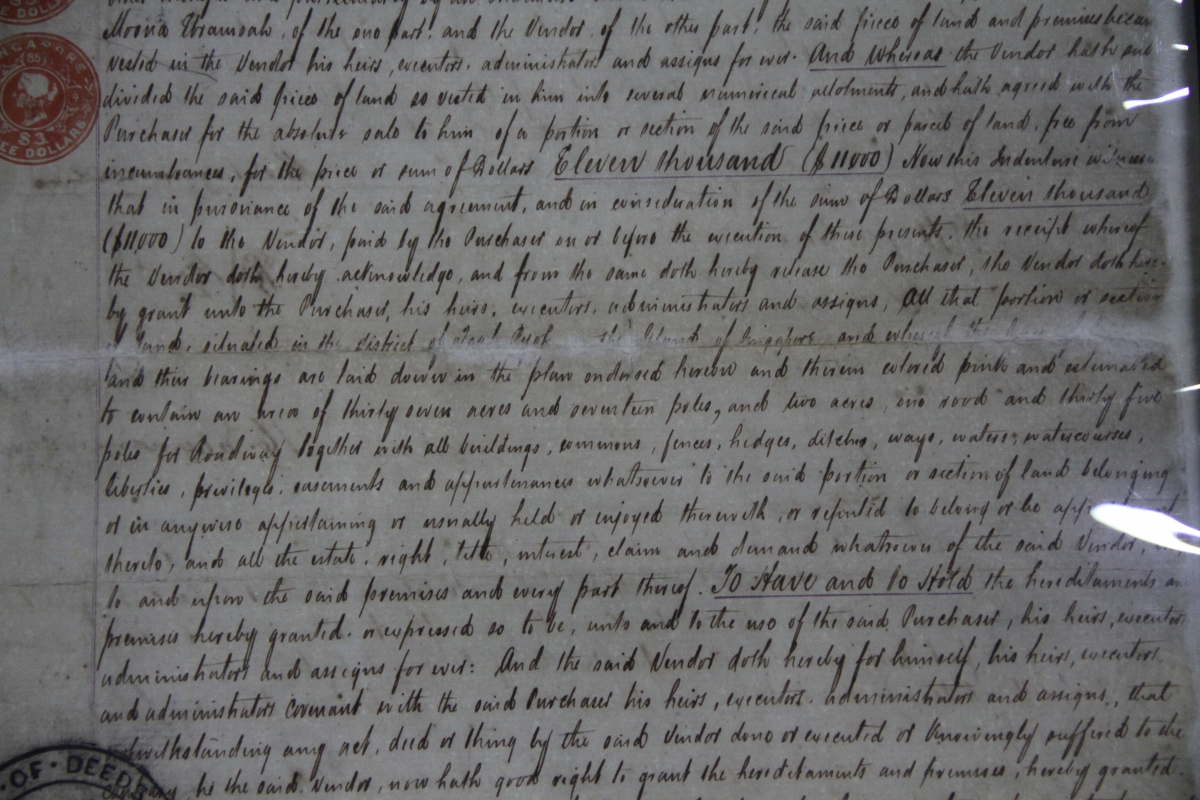 of the one part, and the Vendor, of the other part, the said piece of land and premises
vested in the Vendor his heirs, executors, administrators and assigns for ever. And Whereas the Vendor hath
divided the said piece of land so vested in him into several numerical allotments, and hath agreed with the
Purchaser for the absolute sale to him of a portion or section of the said piece or parcel of land, free from
incumbrances, for the price or sum of Dollars Eleven thousand ($11000) Now this Indenture
that in pursuance of the said agreement, and in consideration of the sum of Dollars Eleven thousand
($11,000) to the Vendor, paid by the Purchaser on or before the execution of these presents, the receipt whereof
the Vendor doth hereby acknowledge, and from the same doth hereby release the Purchaser, the Vendor doth here-
by grant unto the Purchaser, his heirs, executors, administrators and assigns, All that portion or section
of land, situated in the District of in the Island of Singapore and
and their bearings are laid down in the plan endorsed hereon and therein colored pink and estimated
to contain an area of thirty seven acres and seventeen poles, and two acres, one rood and thirty five
poles for Roadway together with all buildings, commons, fences, hedges, ditches, ways, waters, watercourses,
liberties, privileges, easements and appurtenances whatsoever to the said portion or section of land belonging
or in anywise appertaining or usually held or enjoyed therewith, or reputed to belong or be
thereto, and all the estate, right, title, interest, claim and demand whatsoever of the said Vendor,
to and upon the said premises and every part thereof. To Have and to Hold the hereditaments
premises hereby granted, or expressed so to be, unto and to the use of the said Purchaser, his heirs, executors
administrators and assigns for ever: And the said Vendor doth hereby for himself, his heirs, executors
and administrators covenant with the said Purchaser his heirs, executors, administrators and assigns, that
notwithstanding any act, deed or thing by the said Vendor done or executed or knowingly suffered to the
he the said Vendor, now hath good right to grant the hereditaments and premises, hereby granted.
SINGAPORE
$3
THREE DOLLARS
OF · DEEDS